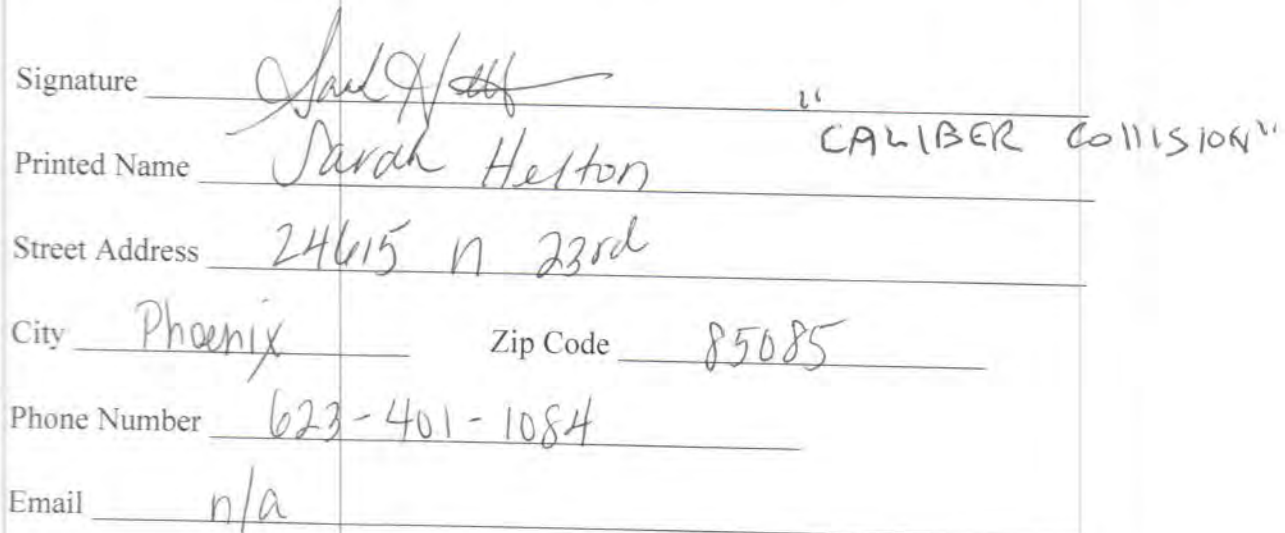 Signature
"CALIBER COLLISION"
Printed Name Sarah Helton
Street Address 24615 n 23rd
City Phoenix Zip Code 85085
Phone Number 623-401-1084
Email n/a